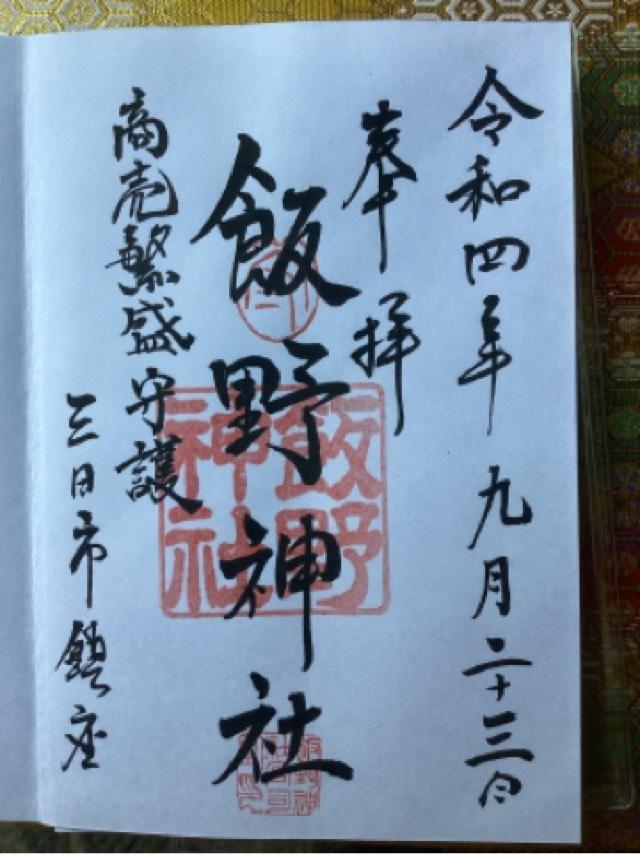 令和四年九月二十三日
奉拝
飯野神社
飯野
神社
商売繁盛守護
三日市鎮座